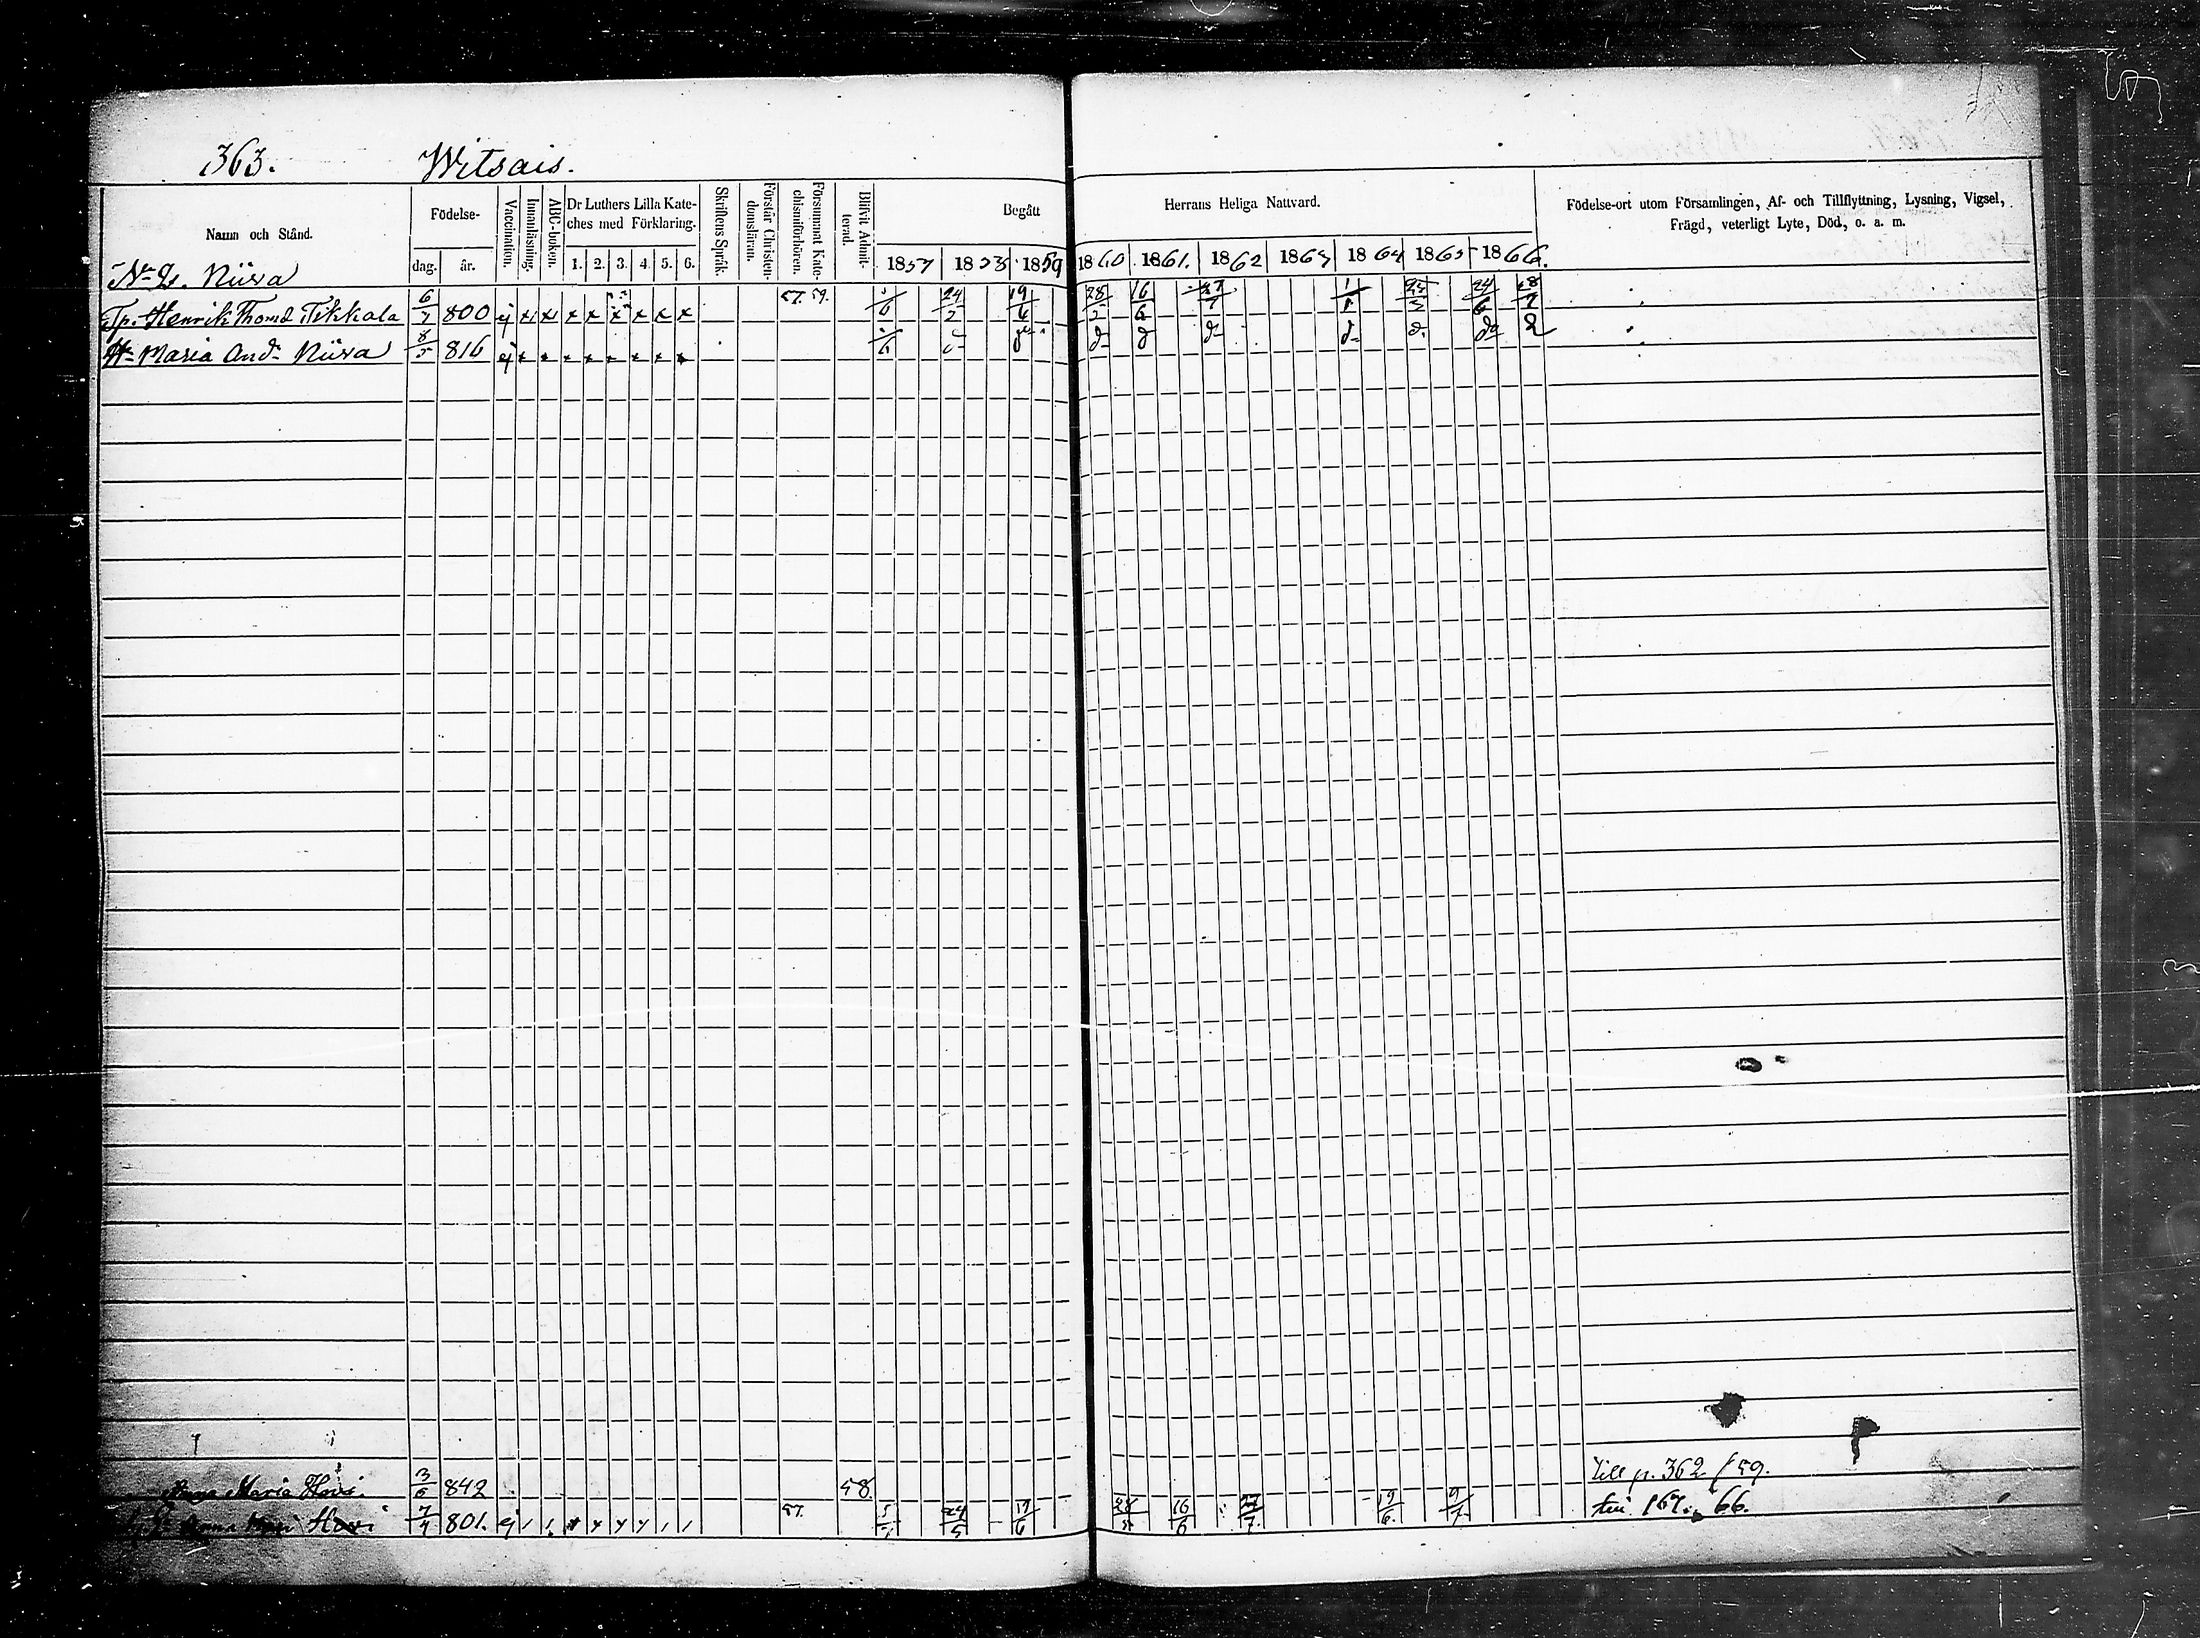 363. Witsais.
Namn och Stånd.
Födelse-
dag. år.
Vaccination.
Innanläsning.
ABC-boken.
Dr Luthers Lilla Kate-
ches med Förklaring.
1. 2. 3. 4. 5. 6.
Skriftens Språk.
Förstår Christen-
domsläran.
Försummat Kate-
chismiförhören.
Blifvit Admit-
terad.
Begått Herrans Heliga Nattvard.
1857 1858 1859 1860 1861. 1862 1863 1864 1865 1866.
Födelse-ort utom Församlingen, Af- och Tillflyttning, Lysning, Vigsel,
Frägd, veterligt Lyte, Död, o. a. m.
Niura
Henrik Thoms Tikkala 6/7 800 ej x x x x x x x x 57. 59. 24/2 19/6 28/2 16/6 27/7 24/6
Maria And. Niura 8/5 816 ej
Anna Maria Hovi. 3/5 842 58. till p. 362 / 59.
Anna Hovi 7/4 801. ej 57. 24/5 19/6 16/6 27/7 19/6 9/7 167. 66.